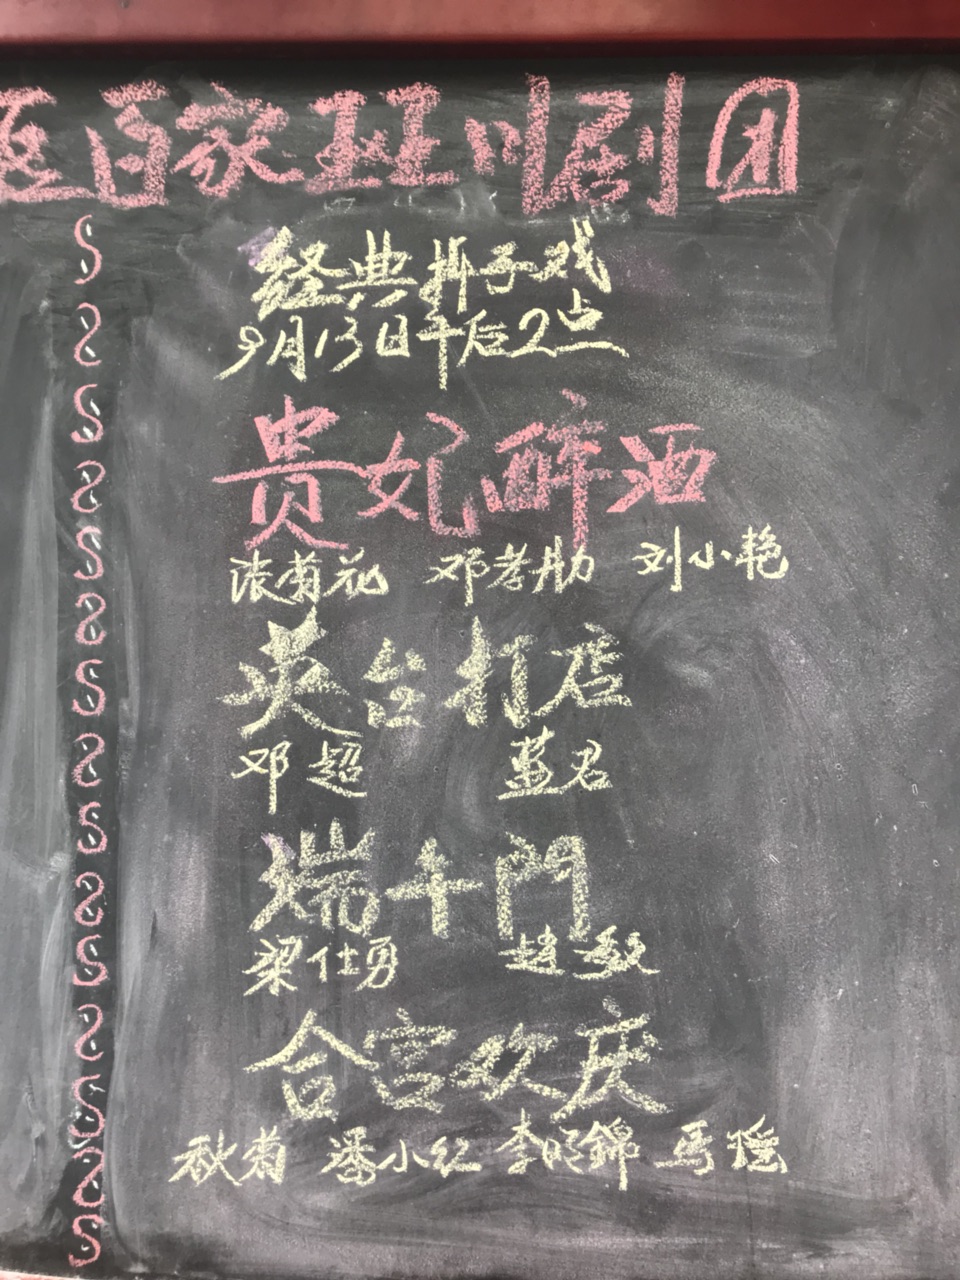 百家班川剧团
经典折子戏
9月13日午后2点
贵妃醉酒
菊花 邓孝肋 刘小艳
英台打店
邓超 蓝君
端午門
梁仕勇 赵毅
合宫欢庆
秋菊 潘小红 李明錦 马瑶